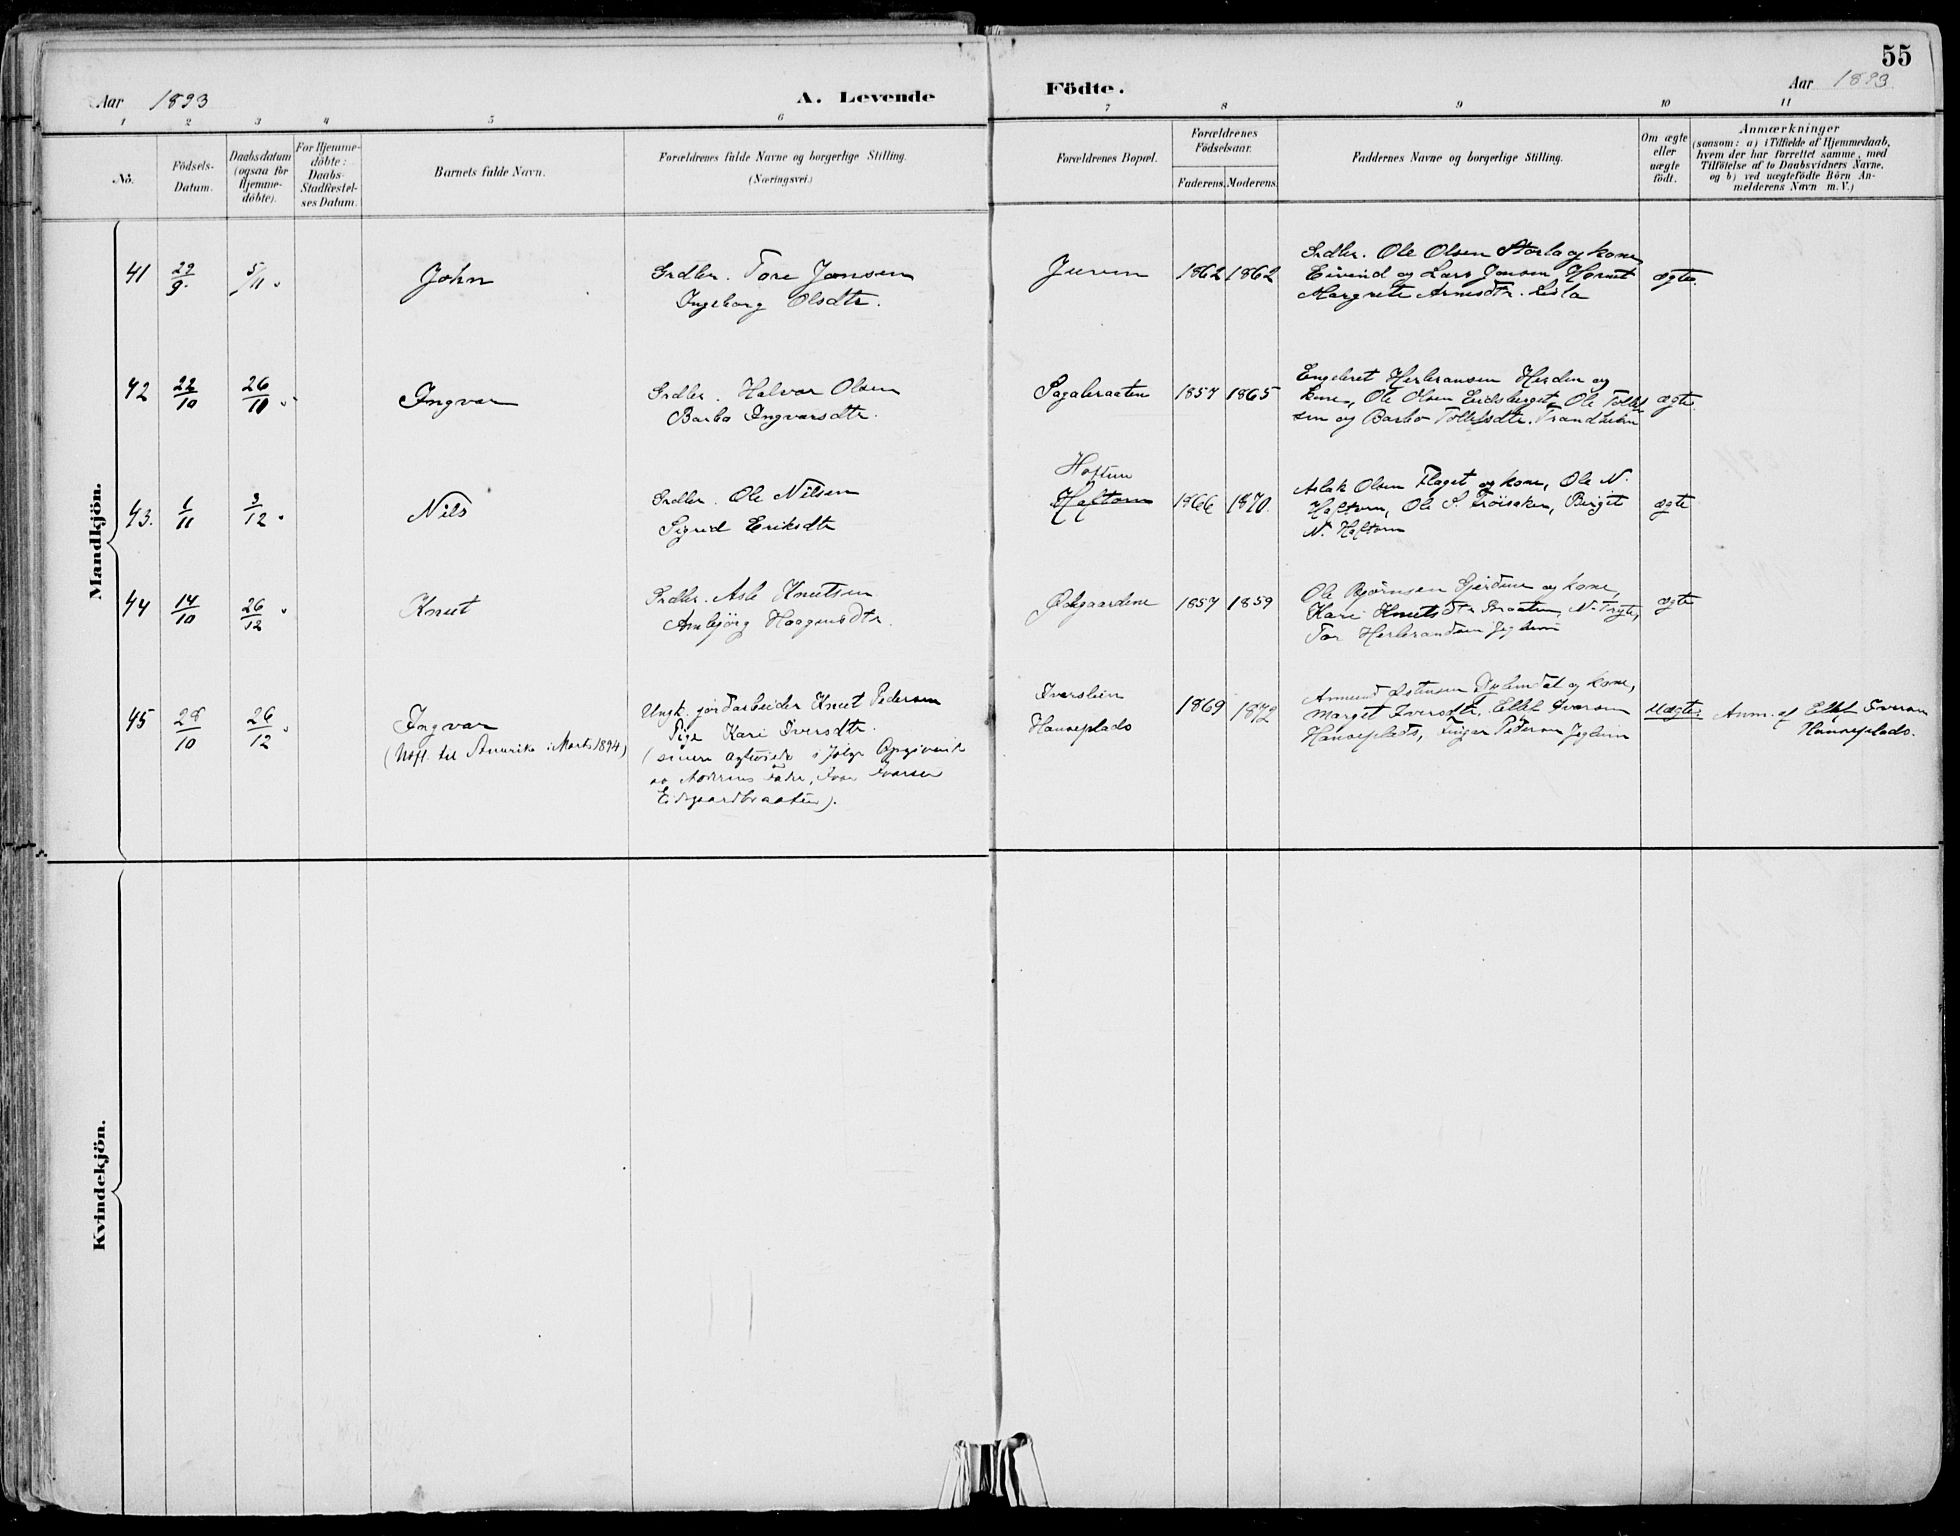 55
Aar 1893
A. Levende
Födte.
Aar 1893
1 2 3 4 5 6 7 8 9 10 11
No.
Födsels-
Datum.
Daabsdatum
(ogsaa för
Hjemme-
döbte).
For Hjemme-
döbte:
Daabs-
Stadfæstel-
ses Datum.
Barnets fulde Navn.
Forældrenes fulde Navne og borgerlige Stilling.
(Næringsvei.)
Forældrenes Bopæl.
Forældrenes
Födselsaar.
Faderens.
Moderens.
Faddernes Navne og borgerlige Stilling.
Om ægte
eller
uægte
födt.
Anmærkninger
(saasom: a) i Tilfælde af Hjemmedaab,
hvem der har forrettet samme, med
Tilföielse af to Daabsvidners Navne,
og b) ved uægtefödte Börn An-
melderens Navn m. V.)
Mandkjön.
41
29/9.
5/11.
John
Indler. Tore Jonsen
Ingeborg Olsdtr.
Juven
1862
1862
Indler. Ole Olsen Storla og kone,
Eivind og Lars Jonsen
Margrete Arnesdtr.
ægte.
42
22/10
26/11.
Ingvar
Indler. Halvor Olsen
Barbo Ingvarsdtr.
Sagabraaten
1857
1865
Engebret Herbransen og
kone, Ole Olsen Eidsberget, Ole Tollef
sen og Barbo Tollefsdtr. Trandheim
ægte.
43.
1/11
3/12.
Nils
Indler. Ole Nilsen
Sigrid Eriksdtr
Haftun
Haftorn
1866
1870.
Aslak Olsen Flaget og kone, Ole N.
Haftorn, Ole S. Frøisaker, Birget
N. Haftorn
ægte
44
14/10
26/12.
Knut
Indler. Asle Knutsen
Ambjörg Haagensdtr.
Ødegaardene
1857
1859
Ole Bjørnsen Gjerdene og kone,
Kari Knutsdtr Braaten, N. Tryte,
Tor Herbrandsen Jegleim
ægte
45
28/10
26/12.
Ingvar
(Udfl. til Amerika i Marts 1894)
Ungk. jordarbeider Knut Pedersen
Pige Kari Iversdtr.
(senere ægteviede i følge Opgivende
av Moderens Fader, Iver Iversen
Eidsgaardbraaten).
Iverslien
Hanseplads
1869
1872
Amund Østensen og kone,
Marget Iversdtr, Ellef Iversen
Hanseplads, Inger Pedersen Jegleim
Uægte.
Anm. af Ellef Iversen
Hanseplads.
Kvindekjön.